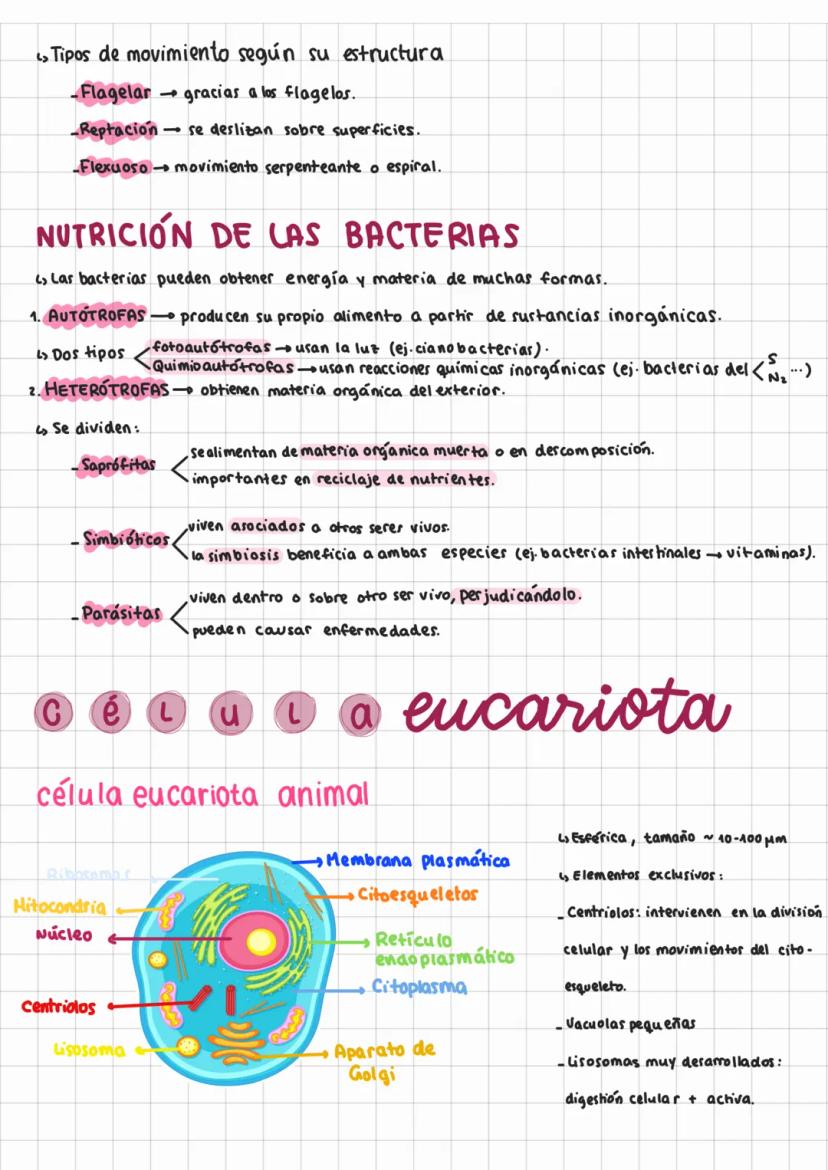 ↳ Tipos de movimiento según su estructura
- Flagelar → gracias a los flagelos.
- Reptación → se deslizan sobre superficies.
- Flexuoso → movimiento serpenteante o espiral.
NUTRICIÓN DE LAS BACTERIAS
↳ Las bacterias pueden obtener energía y materia de muchas formas.
1. AUTÓTROFAS → producen su propio alimento a partir de sustancias inorgánicas.
↳ Dos tipos < fotoautótrofas → usan la luz (ej. cianobacterias).
Quimioautótrofas → usan reacciones químicas inorgánicas (ej. bacterias del < S N₂ ...)
2. HETERÓTROFAS → obtienen materia orgánica del exterior.
↳ Se dividen:
- Saprófitas < se alimentan de materia orgánica muerta o en descomposición.
importantes en reciclaje de nutrientes.
- Simbióticos < viven asociados a otros seres vivos.
la simbiosis beneficia a ambas especies (ej. bacterias intestinales → vitaminas).
- Parásitas < viven dentro o sobre otro ser vivo, perjudicándolo.
pueden causar enfermedades.
Célula eucariota
célula eucariota animal
Ribosomas
Mitocondria
Núcleo
Centriolos
Lisosoma
Membrana plasmática
Citoesqueletos
Retículo
endoplasmático
Citoplasma
Aparato de
Golgi
↳ Esférica, tamaño ~ 10-100 µm
↳ Elementos exclusivos:
- Centriolos: intervienen en la división
celular y los movimientos del cito-
esqueleto.
- Vacuolas pequeñas
- Lisosomas muy desarrollados:
digestión celular + activa.